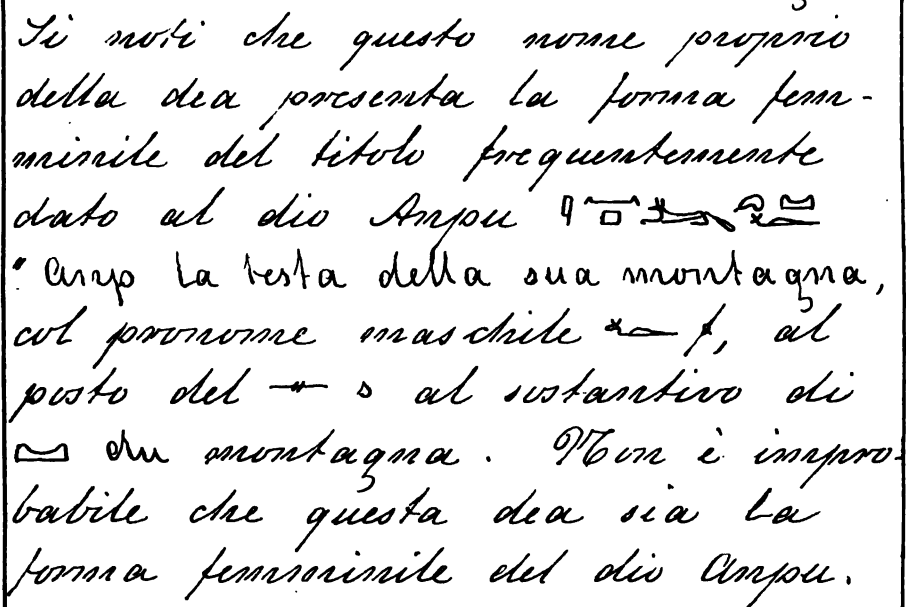 Si noti che questo nome proprio
della dea presenta la forma fem-
minile del titolo frequentemente
dato al dio Anpu
" Anp la testa della sua montagna,
col pronome maschile 𓆑 f, al
posto del 𓊃 s al sostantivo di
𓈋 du montagna. Non è impro-
babile che questa dea sia la
forma femminile del dio Anpu.